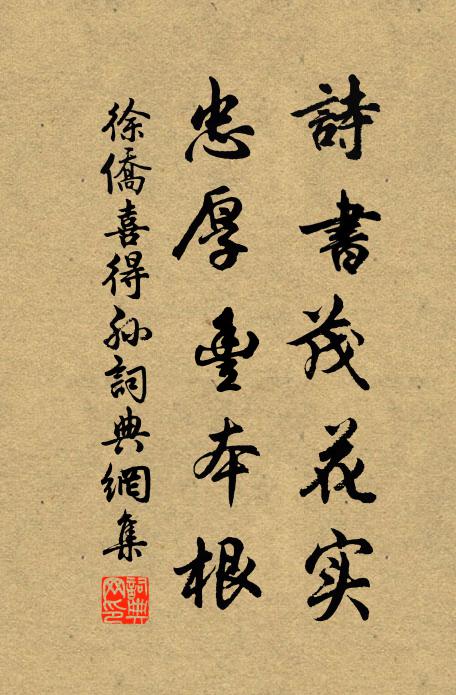 詩書茂花实
忠厚豊本根
徐僑喜得孙詞典網集
詞典网印